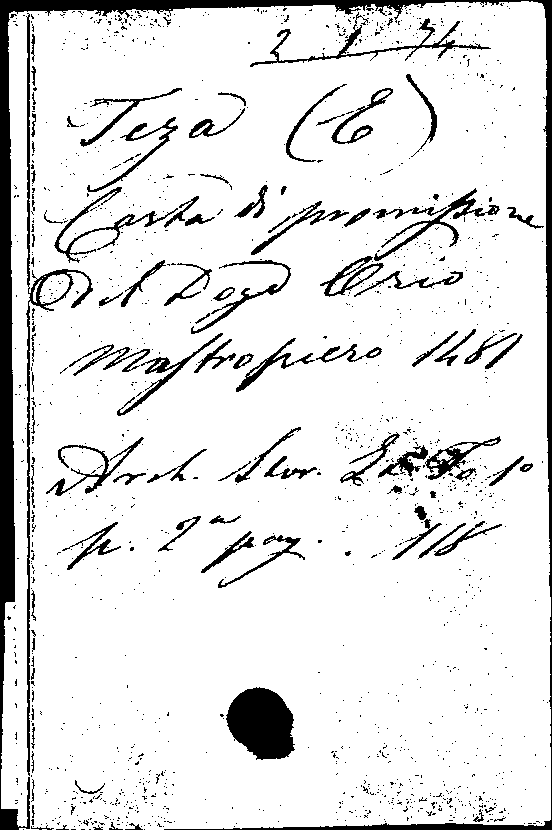 2 1 74
Teza (E)
Carta di promissione
del Doge Orio
Mastropiero 1481
Arch. Stor. To 1º
p. 2ª pag. 118